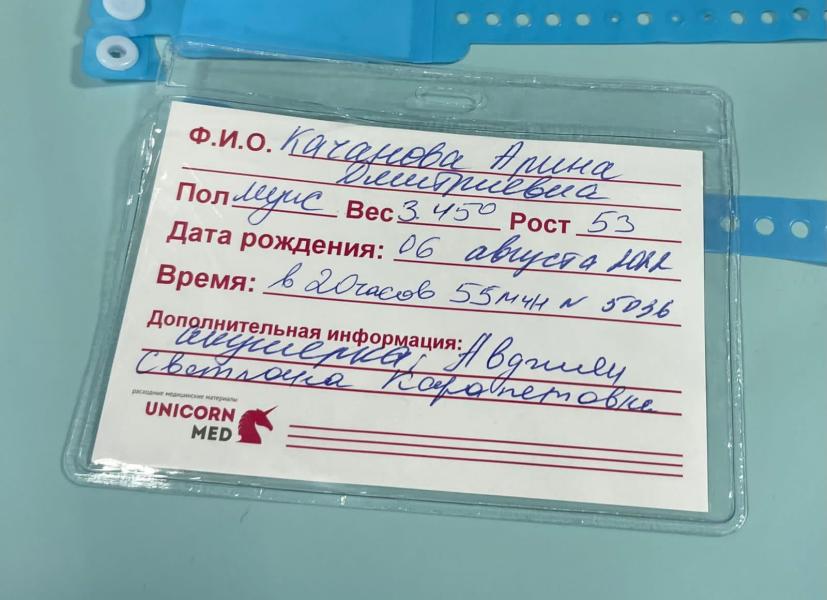 Ф.И.О. Качанова Арина
Дмитриевна
Пол муж Вес 3.450 Рост 53
Дата рождения: 06 августа 2022
Время: в 20 часов 55 мин N 5036
Дополнительная информация:
акушерка:
Светлана Карапетовна
расходные медицинские материалы
UNICORN
MED